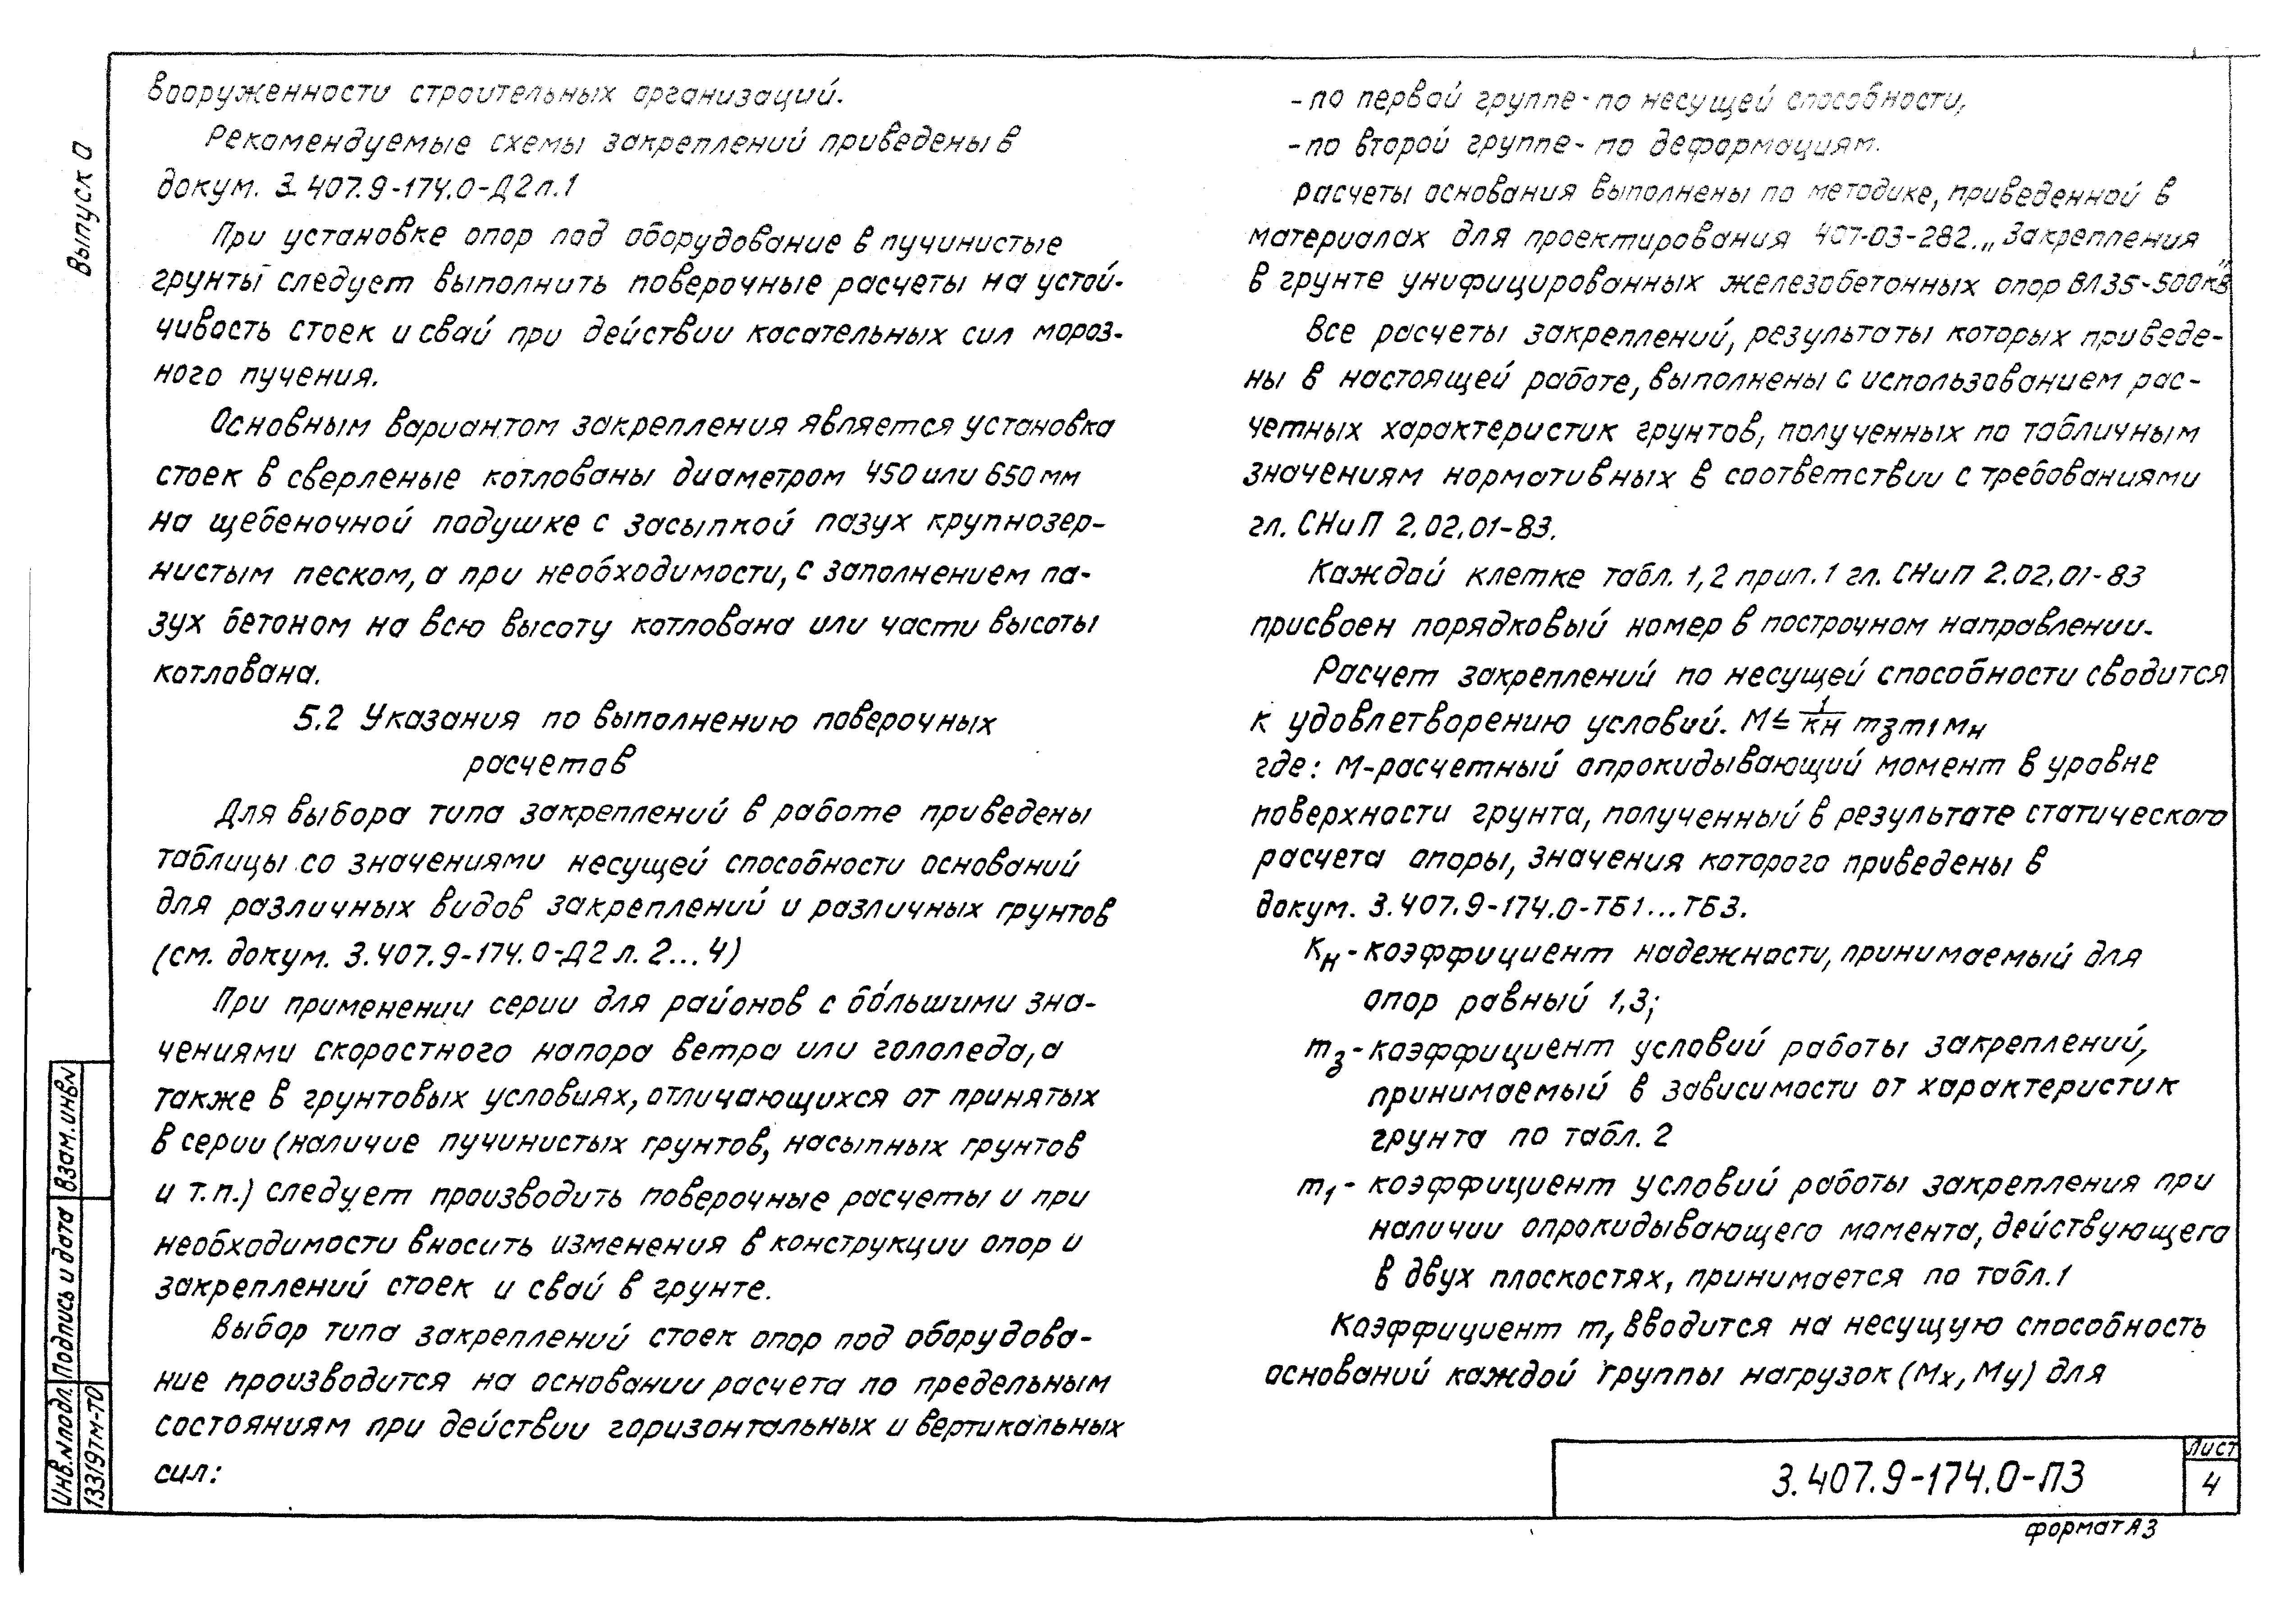 Выпуск 0
вооруженности строительных организаций.
Рекомендуемые схемы закреплений приведены в
докум. 3.407.9-174.0-Д2л.1
При установке опор под оборудование в пучинистые
грунты следует выполнить поверочные расчеты на устой-
чивость стоек и свай при действии касательных сил мороз-
ного пучения.
Основным вариантом закрепления является установка
стоек в сверленые котлованы диаметром 450 или 650 мм
на щебеночной подушке с засыпкой пазух крупнозер-
нистым песком, а при необходимости, с заполнением па-
зух бетоном на всю высоту котлована или части высоты
котлована.
5.2 Указания по выполнению поверочных
расчетов
Для выбора типа закреплений в работе приведены
таблицы со значениями несущей способности оснований
для различных видов закреплений и различных грунтов
(см. докум. 3.407.9-174.0-Д2 л. 2...4)
При применении серии для районов с бо́льшими зна-
чениями скоростного напора ветра или гололеда, а
также в грунтовых условиях, отличающихся от принятых
в серии (наличие пучинистых грунтов, насыпных грунтов
и т.п.) следует производить поверочные расчеты и при
необходимости вносить изменения в конструкции опор и
закреплений стоек и свай в грунте.
Выбор типа закреплений стоек опор под оборудова-
ние производится на основании расчета по предельным
состояниям при действии горизонтальных и вертикальных
сил:
-по первой группе-по несущей способности,
-по второй группе-по деформациям.
расчеты основания выполнены по методике, приведенной в
материалах для проектирования 4СТ-03-282. „Закрепления
в грунте унифицированных железобетонных опор ВЛ35-500кв"
Все расчеты закреплений, результаты которых приведе-
ны в настоящей работе, выполнены с использованием рас-
четных характеристик грунтов, полученных по табличным
значениям нормативных в соответствии с требованиями
гл. СНиП 2.02.01-83.
Каждой клетке табл. 1,2 прил. 1 гл. СНиП 2.02.01-83
присвоен порядковый номер в построчном направлении.
Расчет закреплений по несущей способности сводится
к удовлетворению условий. М ≤ 1/Кн mз m1 Мн
где: М-расчетный опрокидывающий момент в уровне
поверхности грунта, полученный в результате статического
расчета опоры, значения которого приведены в
докум. 3.407.9-174.0-ТБ1...ТБ3.
Кн-коэффициент надежности, принимаемый для
опор равный 1,3;
mз-коэффициент условий работы закреплений,
принимаемый в зависимости от характеристик
грунта по табл. 2
m1- коэффициент условий работы закрепления при
наличии опрокидывающего момента, действующего
в двух плоскостях, принимается по табл.1
Коэффициент m1 вводится на несущую способность
оснований каждой группы нагрузок (Мх, Му) для
Инв.№подл. Подпись и дата Взам.инв№
13319тм-т0
3.407.9-174.0-ПЗ
Лист
4
формат А3